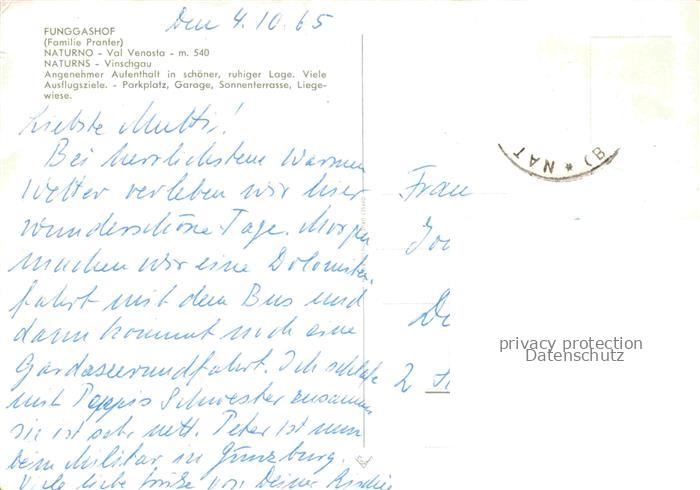 FUNGGASHOF
(Familie Pranter)
NATURNO - Val Venosta - m. 540
NATURNS - Vinschgau
Angenehmer Aufenthalt in schöner, ruhiger Lage. Viele
Ausflugsziele. - Parkplatz, Garage, Sonnenterrasse, Liege-
wiese.
Den 4.10.65
Liebste Mutti!
Bei herrlichstem warmen
Wetter verleben wir hier
wunderschöne Tage. Morgen
machen wir eine Dolomiten-
fahrt mit dem Bus und
dann kommt noch eine
Gardaseerundfahrt. Ich schlafe
mit Peppis Schwester zusammen
sie ist sehr nett. Peter ist nun
beim Militär in Günzburg.
Viele liebe Grüße von Deiner
(B) * NAT
Frau
2
privacy protection
Datenschutz